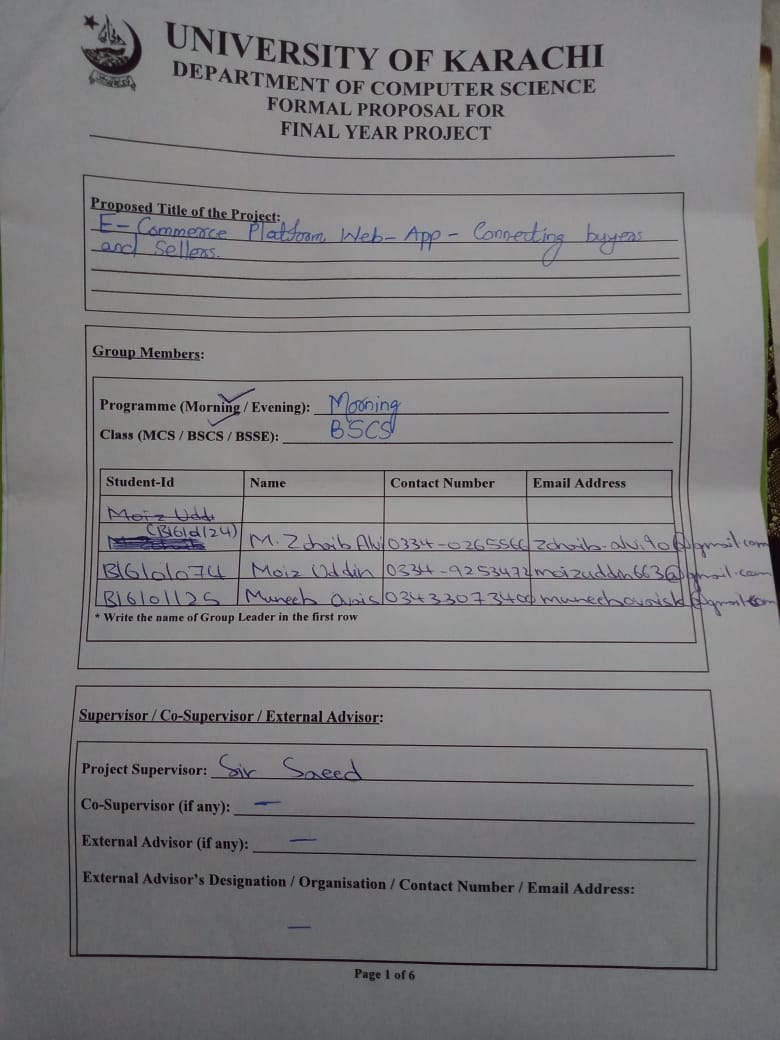 UNIVERSITY OF KARACHI
DEPARTMENT OF COMPUTER SCIENCE
FORMAL PROPOSAL FOR
FINAL YEAR PROJECT
Proposed Title of the Project:
E-Commerce Platform, Web-App - Connecting buyers
and Sellers.
Group Members:
Programme (Morning / Evening): Morning
Class (MCS / BSCS / BSSE): BSCS
Student-Id Name Contact Number Email Address
Moiz Uddi
M. Zohaib Alvi 0334-0265566
B16101074 Moiz Uddin 0334-9253472 moizuddin663@gmail.com
B16101125 Muneeb anis
* Write the name of Group Leader in the first row
Supervisor / Co-Supervisor / External Advisor:
Project Supervisor: Sir Saeed
Co-Supervisor (if any): —
External Advisor (if any): —
External Advisor's Designation / Organisation / Contact Number / Email Address:
—
Page 1 of 6